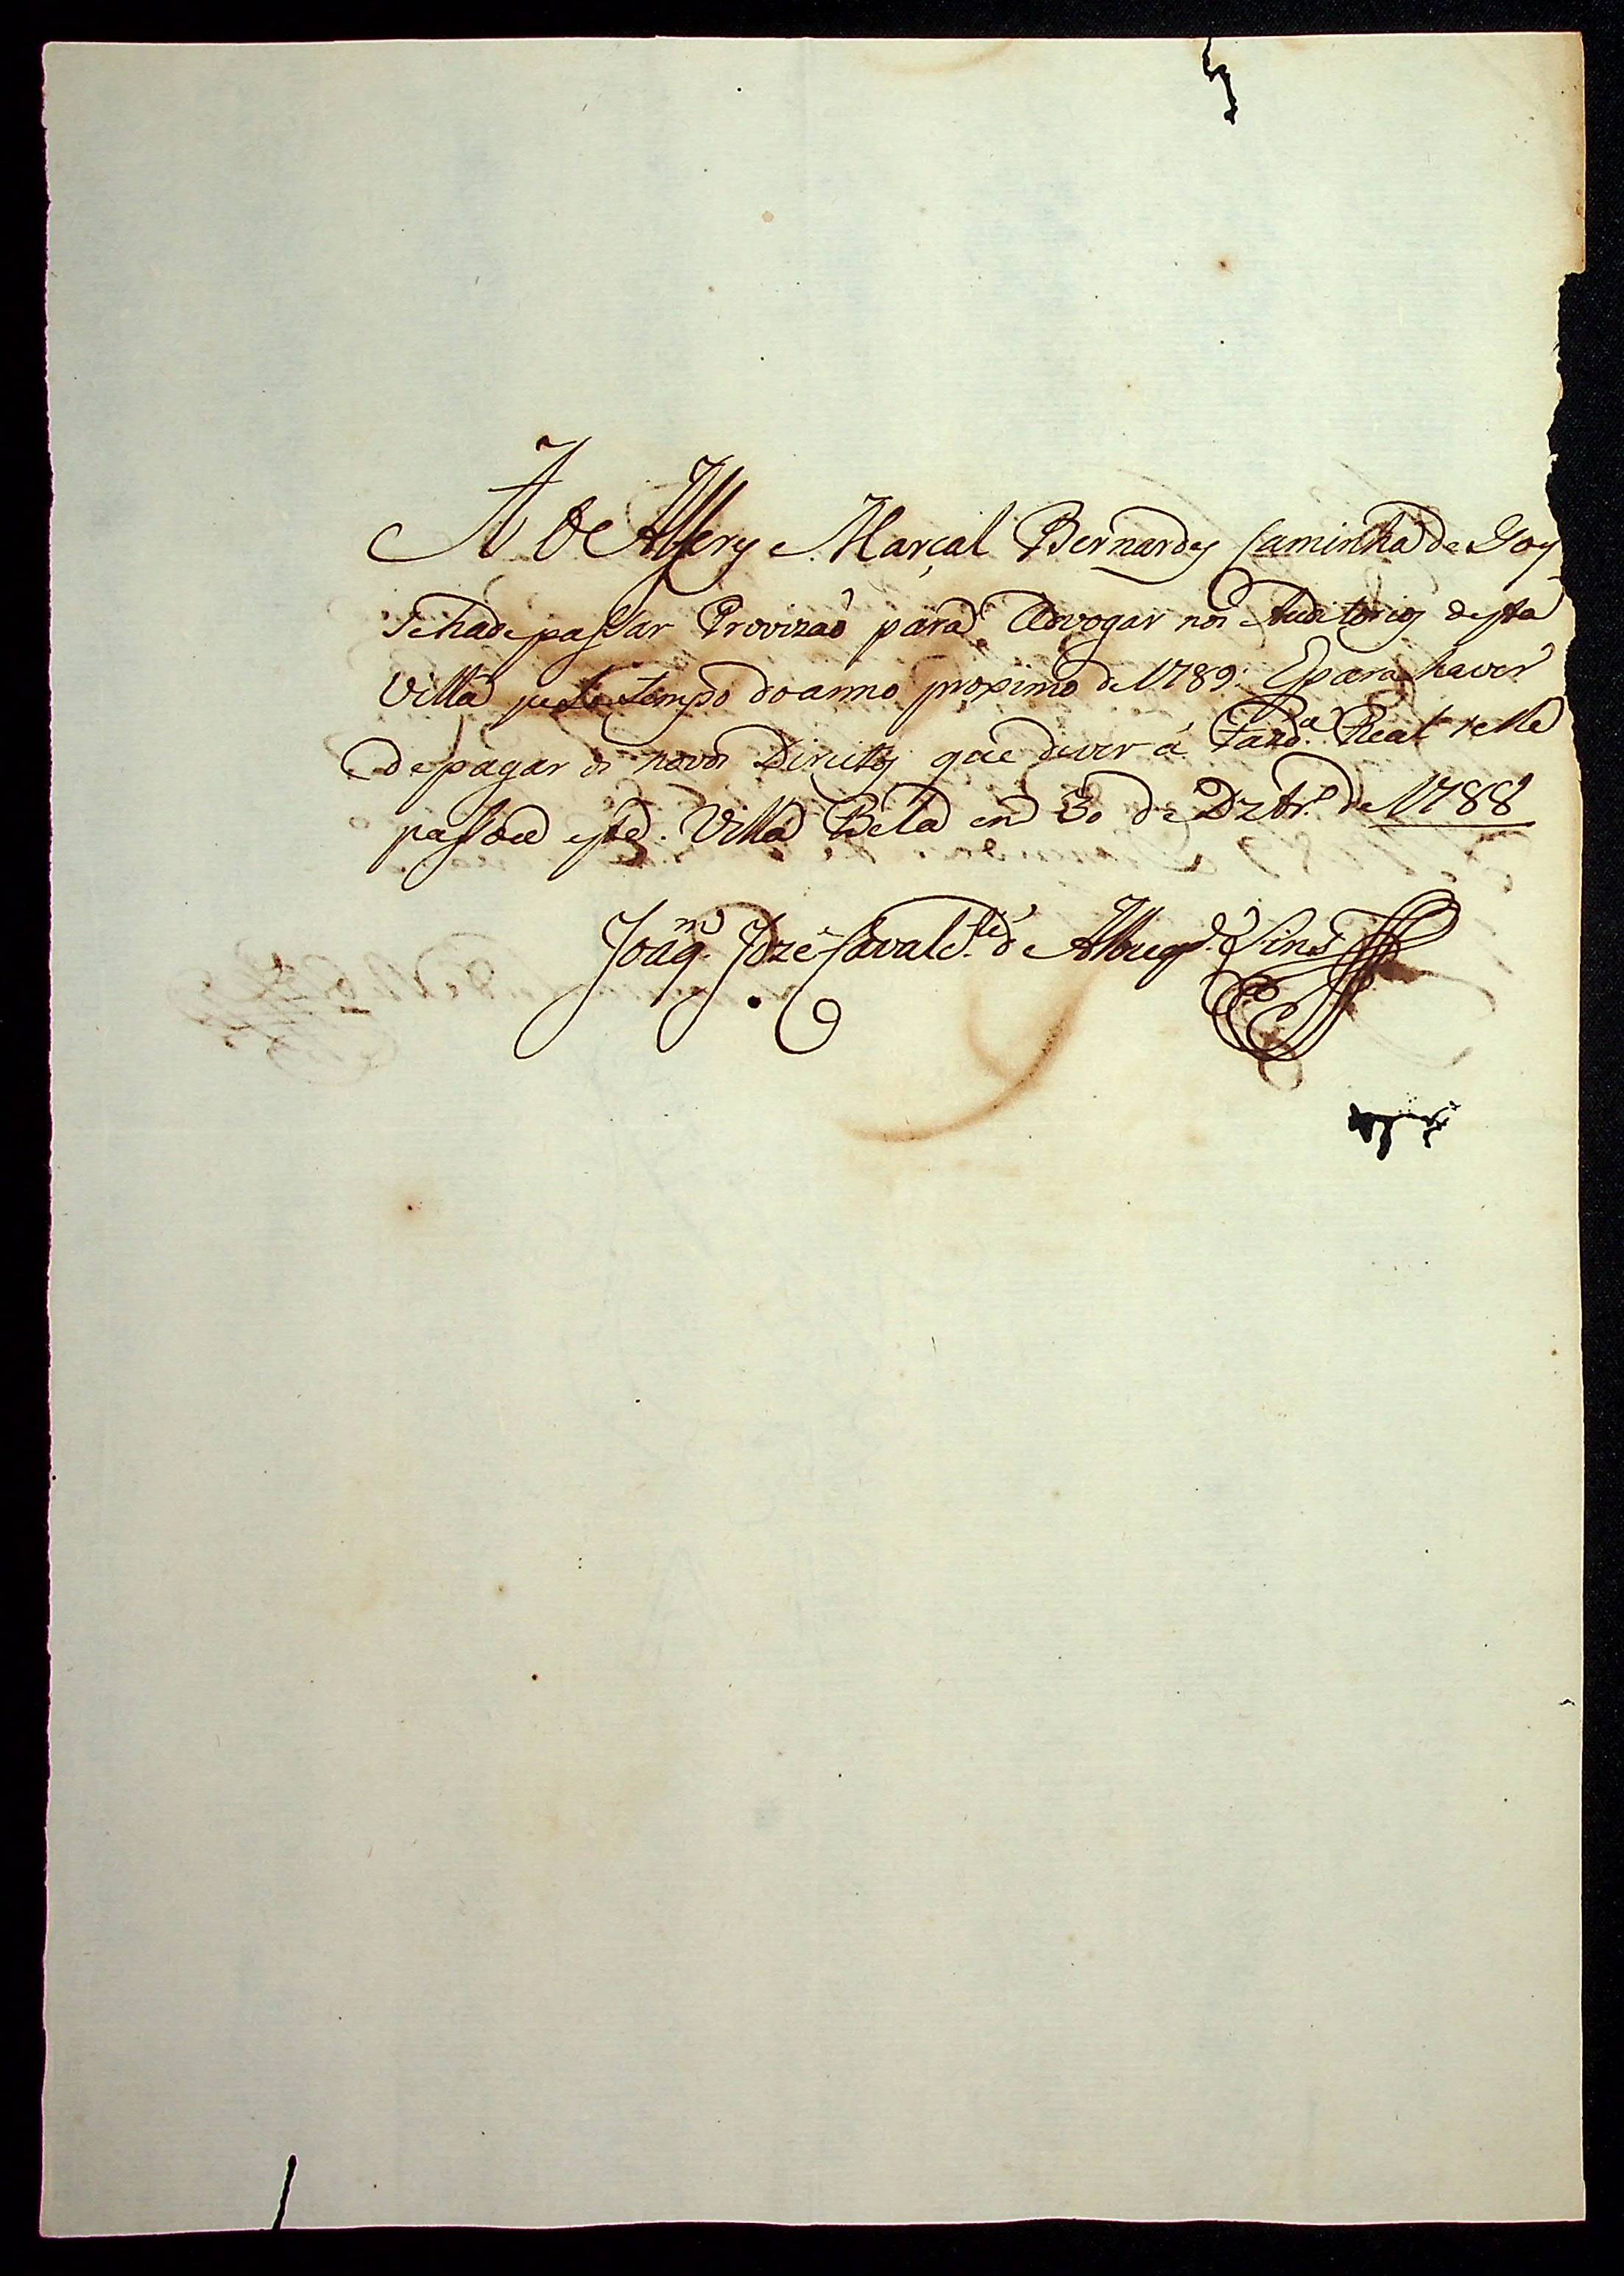 Ao Alferes Marçal Bernardes Caminha de Goes
Se hade passar Provizaõ para Advogar nos Auditorios desta
Villa pelo tempo do anno proximo de 1789. E para haver
de pagar os novos Direitos que dever á Fazd.ª Real se lhe
passou este. Villa Bela em 30 de Dzbr.º de 1788
Joaq.m Joze Cavalc.te d'Albuq.e Lins